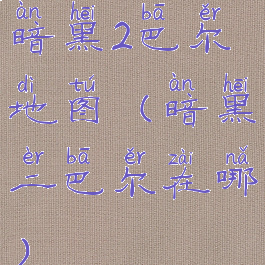 àn hēi bā ěr
暗黑2巴尔
dì tú àn hēi
地图(暗黑
èr bā ěr zài nǎ
二巴尔在哪
)